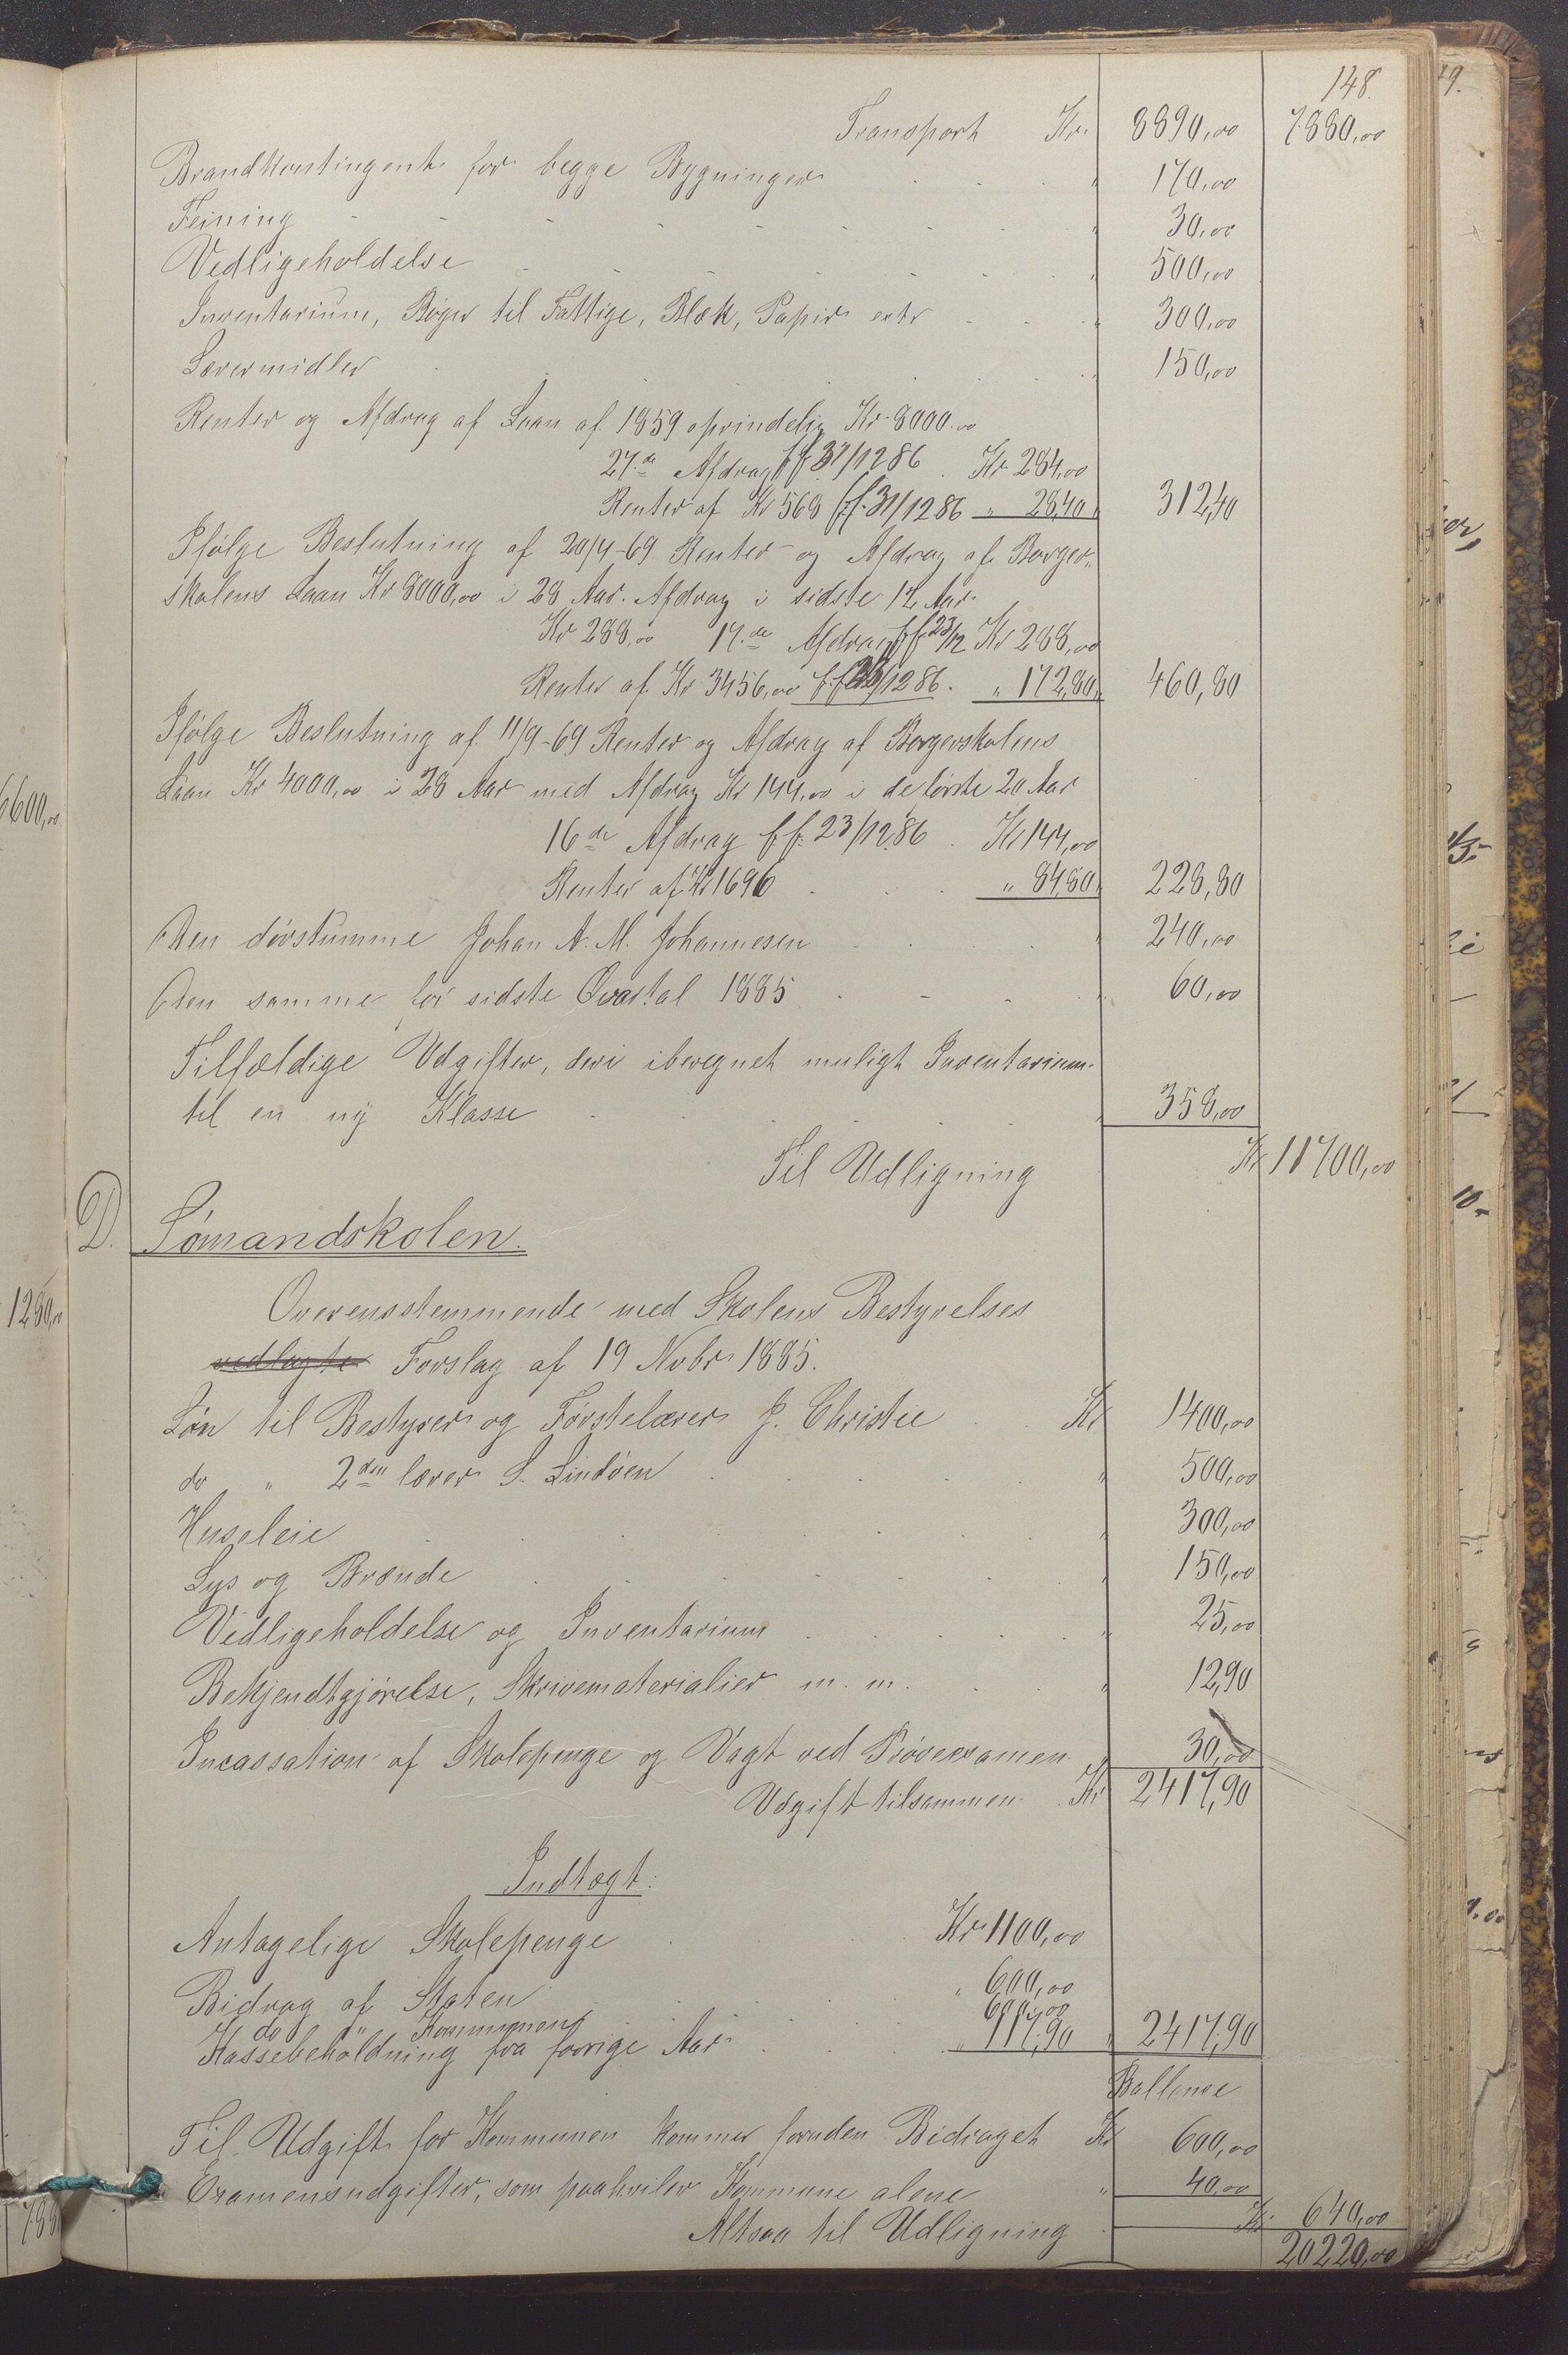 148.
Transport Kr. 8890,00 7880,00
Brandkontingent for begge Bygninger " 170,00
Feining " 30,00
Vedligeholdelse " 500,00
Inventarium, Bøger til Fattige, Blæk, Papir etc " 300,00
Lærermidler " 150,00
Renter og Afdrag af Laan af 1859 oprindelig Kr 8000.00
27.de Afdrag ff 31/12 86 Kr 284,00
Renter af Kr 568 ff. 31/12 86 " 28,40 " 312,40
Ifølge Beslutning af 20/4-69 Renter og Afdrag af Borger-
skolens Laan Kr 8000,00 i 28 Aar. Afdrag i sidste 12 Aar
Kr 288,00 17.de Afdrag ff 23/12 Kr 288,00
Renter af Kr 3456,00 ff 23/12 86. " 172,80 " 460,80
Ifølge Beslutning af 11/9-69 Renter og Afdrag af Borgerskolens
Laan Kr 4000,00 i 28 Aar med Afdrag Kr 144,00 i de første 20 Aar
16de Afdrag ff. 23/12 86 Kr 144,00
Renter af Kr 1696 " 84,80 " 228,80
Den døvstumme Johan A. M. Johannesen " 240,00
Den samme for sidste Qvartal 1885 " 60,00
Tilfældige Udgifter, deri iberegnet muligt Inventarium
til en ny Klasse " 358,00
Til Udligning Kr 11700,00
D. Sømandskolen.
Overensstemmende med Skolens Bestyrelses
vedlagte Forslag af 19 Novbr 1885.
Løn til Bestyrer og Førstelærer J. Christie Kr 1400,00
do " 2den lærer S. Lindøen " 500,00
Husleie " 300,00
Lys og Brænde " 150,00
Vedligeholdelse og Inventarium " 25,00
Bekjendtgjørelse, Skrivematerialier m. m. " 12,90
Incassation af Skolepenge og Vagt ved Prøveexamen " 30,00
Udgift tilsammen Kr 2417,90
Indtægt:
Antagelige Skolepenge Kr 1100,00
Bidrag af Staten " 600,00
do " Kommunen 600,00
Kassebeholdning fra forrige Aar " 117,90 " 2417,90
Ballence
Til Udgift for Kommunen kommer foruden Bidraget Kr 600,00
Examensudgifter, som paahviler Kommune alene " 40,00
Altsaa til Udligning Kr 640,00
20220,00
6600,00
1280,00